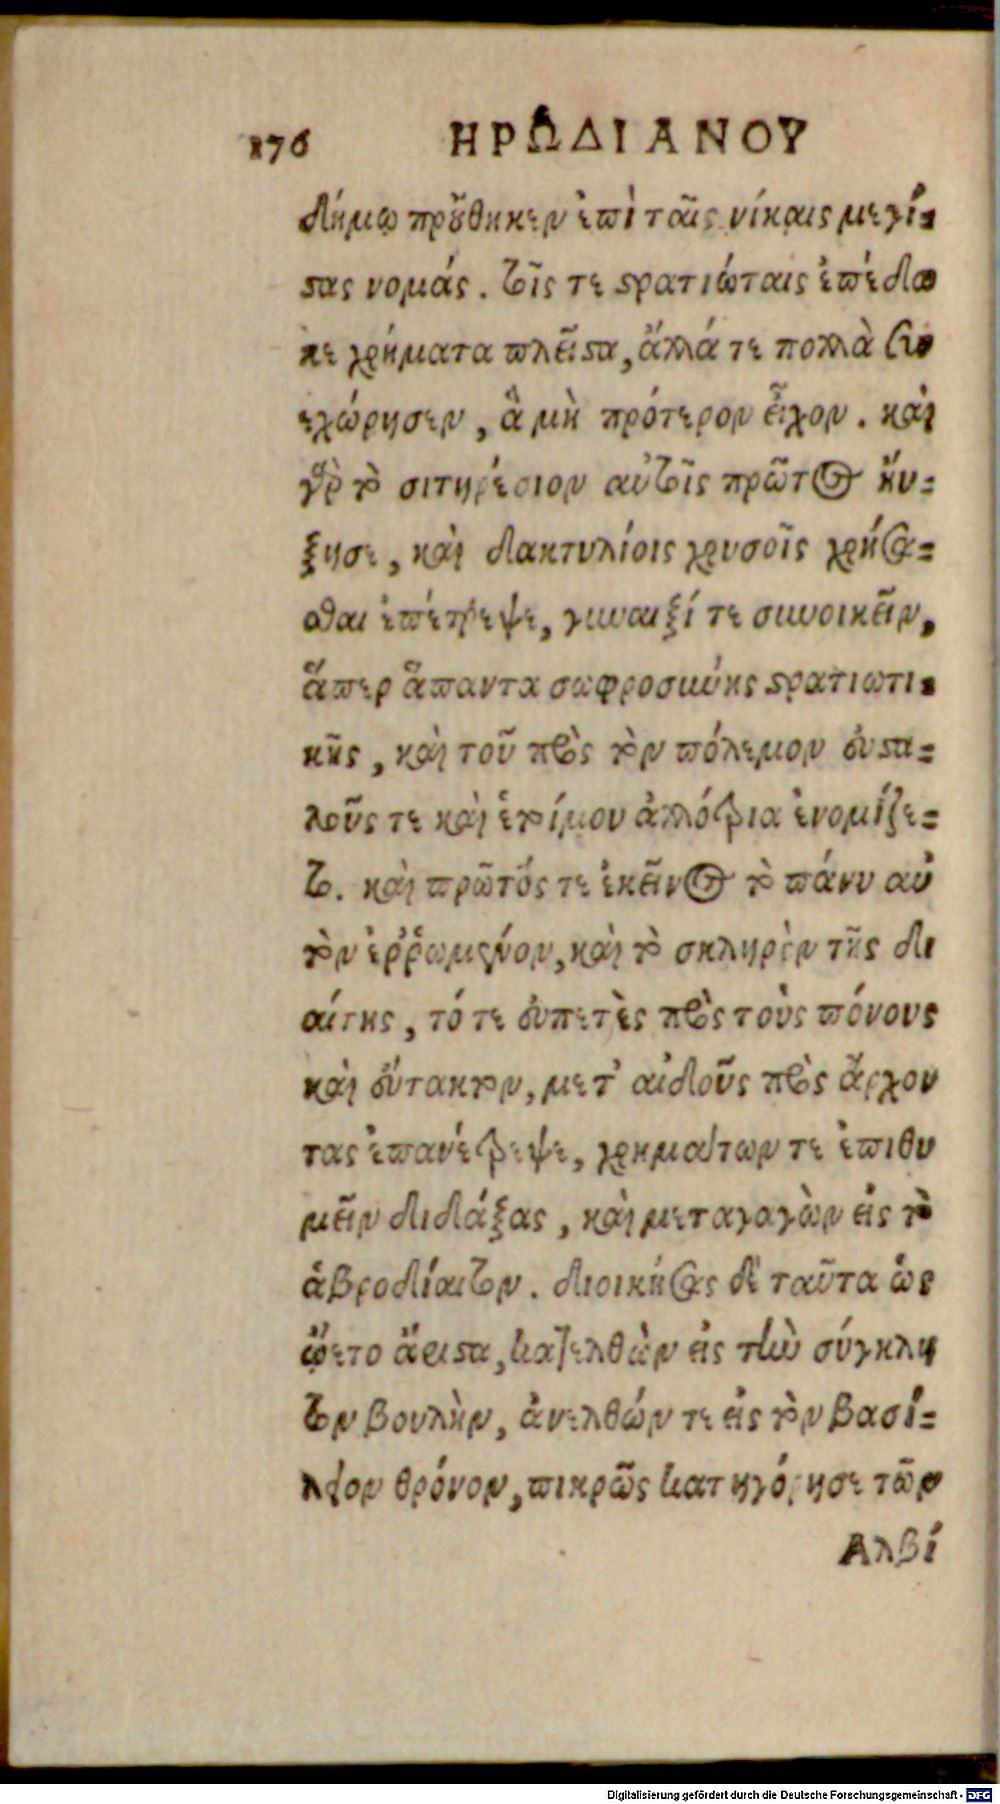 176 ΗΡΩΔΙΑΝΟΥ
δήμῳ προὔθηκεν ἐπὶ ταῖς νίκαις μεγί-
στας νομάς. τοῖς τε στρατιώταις ἐπέδω
κε χρήματα πλεῖστα, ἄλλά τε πολλὰ συν
εχώρησεν, ἃ μὴ πρότερον εἶχον. καὶ
γὰρ τὸ σιτηρέσιον αὐτοῖς πρῶτος ηὔ-
ξησε, καὶ δακτυλίοις χρυσοῖς χρήσα-
σθαι ἐπέτρεψε, γυναιξί τε συνοικεῖν,
ἅπερ ἅπαντα σωφροσύνης στρατιωτι-
κῆς, καὶ τοῦ πρὸς τὸν πόλεμον εὐστα-
λοῦς τε καὶ ἑτοίμου ἀλλότρια ἐνομίζε-
το. καὶ πρῶτός τε ἐκεῖνος τὸ πάνυ αὐ
τῶν ἐῤῥωμένον, καὶ τὸ σκληρὸν τῆς δι
αίτης, τό τε εὐπετὲς πρὸς τοὺς πόνους
καὶ εὔτακτον, μετ' αἰδοῦς πρὸς ἄρχον
τας ἐπανέτρεψε, χρημάτων τε ἐπιθυ
μεῖν διδάξας, καὶ μεταγαγὼν εἰς τὸ
ἁβροδίαιτον. διοικήσας δὲ ταῦτα ὡς
ᾤετο ἄριστα, κατελθὼν εἰς τὴν σύγκλη
τον βουλὴν, ἀνελθών τε εἰς τὸν βασί-
λειον θρόνον, πικρῶς κατηγόρησε τῶν
Αλβί
Digitalisierung gefördert durch die Deutsche Forschungsgemeinschaft - DFG